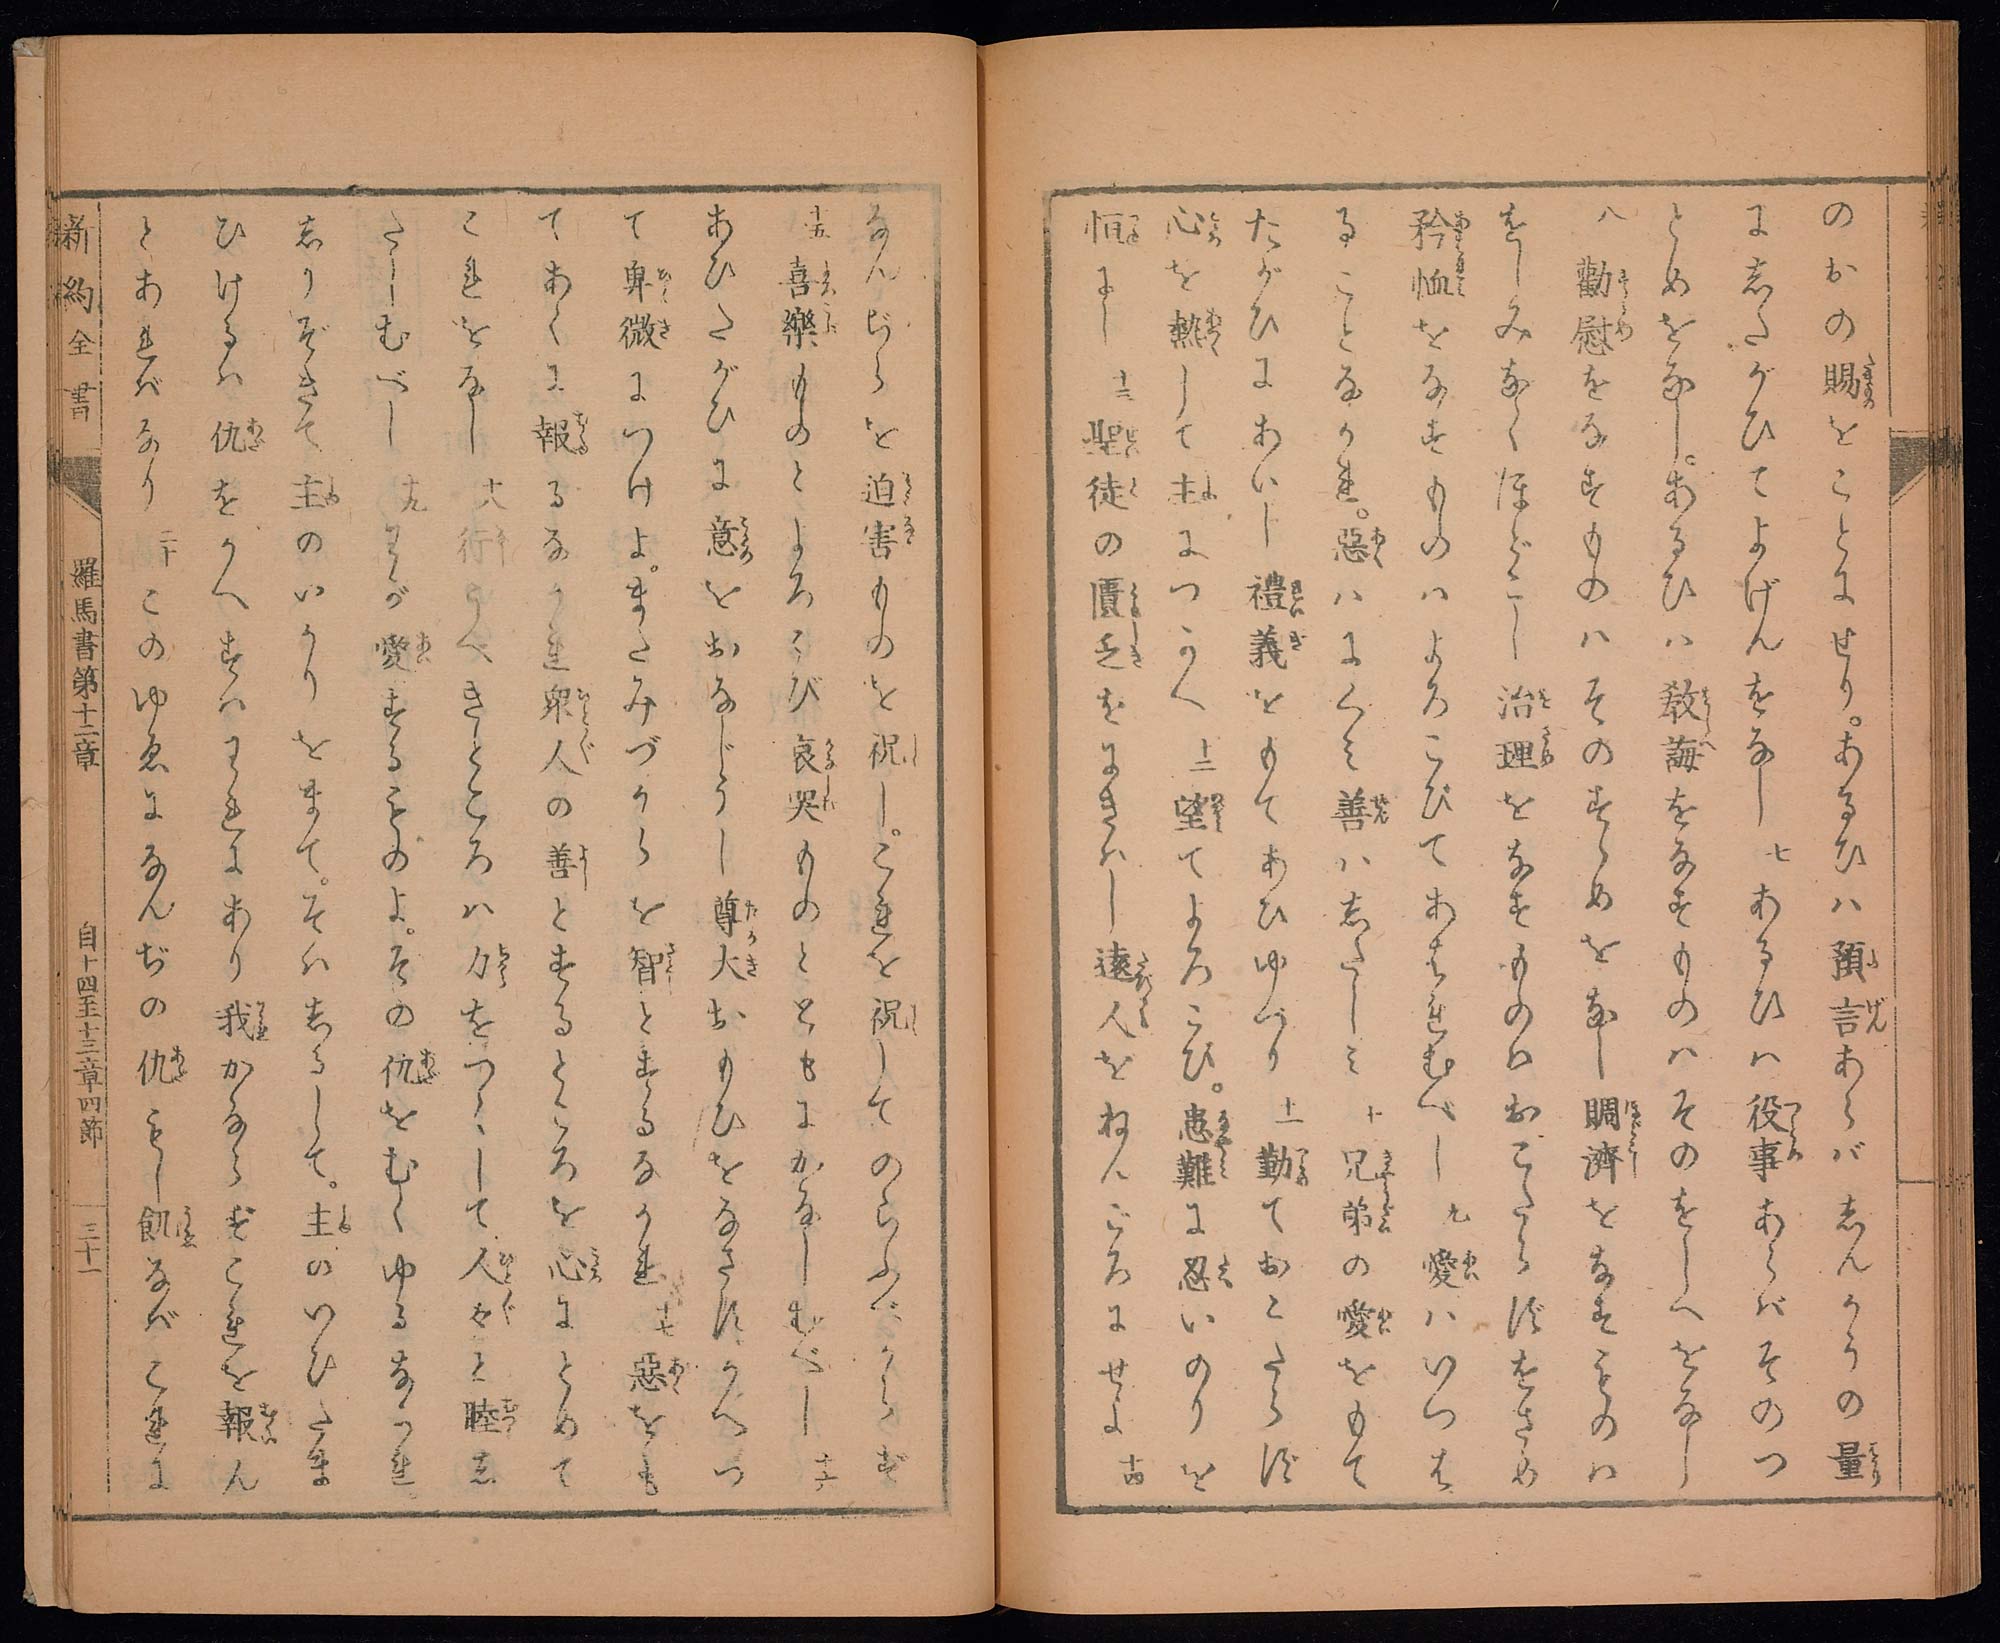 のおの賜をことにせり。あるひハ預言あらバしんかうの量
にしたがひてよげんをなし 七 あるひハ役事あらバそのつ
とめをなし。あるひハ教誨をなすものハそのをしへをなし
八 勸慰をなすものハそのすゝめをなし賙濟をなすものハ
をしみなくほどこし治理をなすものハおこたらずをさめ
矜恤をなすものハよろこびてあはれむべし 九 愛ハいつは
ることなかれ。惡ハにくみ善ハしたしみ 十 兄弟の愛をもて
たがひにあいし禮義をもてあひゆづり 十一 勤ておこたらず
心を熱して主につかへ 十二 望てよろこび。患難に忍いのりを
恒にし 十三 聖徒の匱乏をにぎハし遠人をねんごろにせよ 十四
なんぢらを迫害ものを祝し。これを祝してのろふべからず
十五 喜樂ものとよろこび哀哭ものとともにかなしむべし 十六
あひたがひに意をおなじうし尊大おもひをなさずかへつ
て卑微につけよ。またみづからを智とするなかれ 十七 惡をも
てあくに報るなかれ衆人の善とするところを心にとめて
これをなし 十八 行うべきところハ力をつくして人々と睦し
たしむべし 十九 わが愛するものよ。その仇をむくゆるなかれ。
しりぞきて主のいかりをまて。そハしるして。主のいひたま
ひけるハ仇をかへすハわれにあり我かならずこれを報ん
とあれバなり 二十 このゆゑになんぢの仇もし飢なバこれに
新約全書 羅馬書第十二章 自十四至十三章四節 三十一